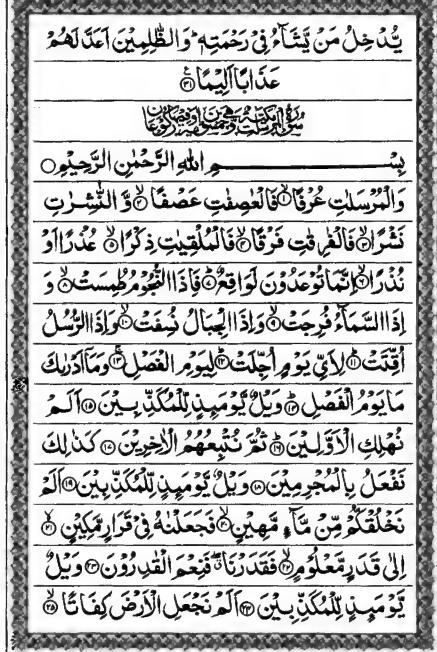 يُّدْخِلُ مَنْ يَّشَآءُ فِىْ رَحْمَتِهٖ ؕ وَالظّٰلِمِيْنَ اَعَدَّ لَهُمْ
عَذَابًا اَلِيْمًا ﴿۳۱﴾
بِسْمِ اللهِ الرَّحْمٰنِ الرَّحِيْمِ ○
وَالْمُرْسَلٰتِ عُرْفًا ۙ﴿۱﴾ فَالْعٰصِفٰتِ عَصْفًا ۙ﴿۲﴾ وَّ النّٰشِرٰتِ
نَشْرًا ۙ﴿۳﴾ فَالْفٰرِقٰتِ فَرْقًا ۙ﴿۴﴾ فَالْمُلْقِيٰتِ ذِكْرًا ۙ﴿۵﴾ عُذْرًا اَوْ
نُذْرًا ۙ﴿۶﴾ اِنَّمَا تُوْعَدُوْنَ لَوَاقِعٌ ؕ﴿۷﴾ فَاِذَا النُّجُوْمُ طُمِسَتْ ۙ﴿۸﴾ وَ
اِذَا السَّمَآءُ فُرِجَتْ ۙ﴿۹﴾ وَاِذَا الْجِبَالُ نُسِفَتْ ۙ﴿۱۰﴾ وَاِذَا الرُّسُلُ
اُقِّتَتْ ؕ﴿۱۱﴾ لِاَىِّ يَوْمٍ اُجِّلَتْ ؕ﴿۱۲﴾ لِيَوْمِ الْفَصْلِ ۚ﴿۱۳﴾ وَمَاۤ اَدْرٰىكَ
مَا يَوْمُ الْفَصْلِ ؕ﴿۱۴﴾ وَيْلٌ يَّوْمَئِذٍ لِّلْمُكَذِّبِيْنَ ﴿۱۵﴾ اَلَمْ
نُهْلِكِ الْاَوَّلِيْنَ ؕ﴿۱۶﴾ ثُمَّ نُتْبِعُهُمُ الْاٰخِرِيْنَ ﴿۱۷﴾ كَذٰلِكَ
نَفْعَلُ بِالْمُجْرِمِيْنَ ﴿۱۸﴾ وَيْلٌ يَّوْمَئِذٍ لِّلْمُكَذِّبِيْنَ ﴿۱۹﴾ اَلَمْ
نَخْلُقْكُّمْ مِّنْ مَّآءٍ مَّهِيْنٍ ۙ﴿۲۰﴾ فَجَعَلْنٰهُ فِىْ قَرَارٍ مَّكِيْنٍ ۙ﴿۲۱﴾
اِلٰى قَدَرٍ مَّعْلُوْمٍ ۙ﴿۲۲﴾ فَقَدَرْنَا ۖ فَنِعْمَ الْقٰدِرُوْنَ ﴿۲۳﴾ وَيْلٌ
يَّوْمَئِذٍ لِّلْمُكَذِّبِيْنَ ﴿۲۴﴾ اَلَمْ نَجْعَلِ الْاَرْضَ كِفَاتًا ۙ﴿۲۵﴾